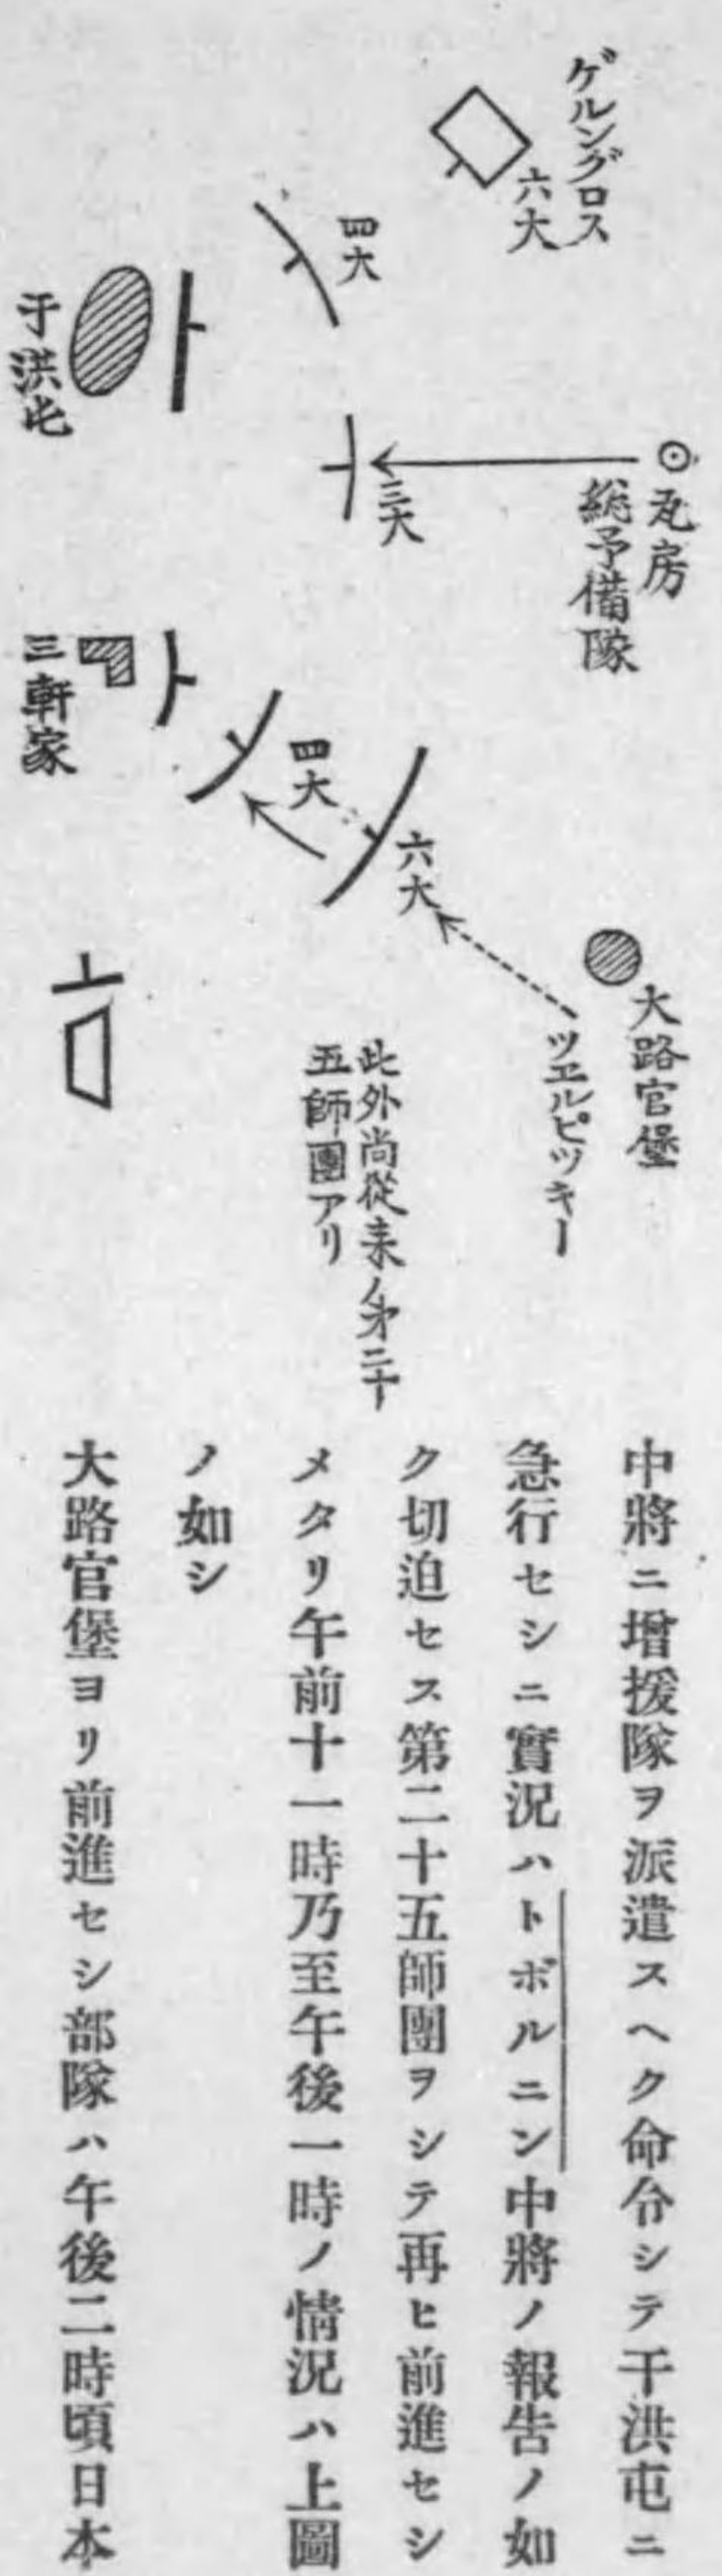 ゲルングロス
六大
四大
于洪屯
瓦房
総予備隊
三大
三軒家
四大
六大
大路官堡
ツエルピツキー
此外尚従来ノ第二十
五師團アリ
中將ニ增援隊ヲ派遣スヘク命令シテ干洪屯ニ
急行セシニ實況ハトボルニン中將ノ報告ノ如
ク切迫セス第二十五師團ヲシテ再ヒ前進セシ
メタリ午前十一時乃至午後一時ノ情況ハ上圖
ノ如シ
大路官堡ヨリ前進セシ部隊ハ午後二時頃日本